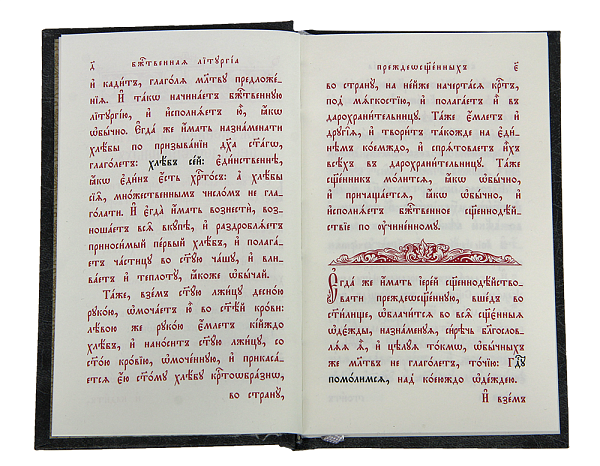 д҃ бжⷭ҇твенная лїтургі́а
и҆ кади́тъ, глаго́лѧ мл҃тву предложе́-
нїѧ. И҆ та́кѡ начина́етъ бжⷭ҇твенную
лїтургі́ю, и҆ и҆сполнѧ́етъ ю҆̀, ꙗ҆́кѡ
ѡ҆бы́чно. Є҆гда́ же и҆́мать назна́менати
хлѣ́бы по призыва́нїи дх҃а ст҃а́гѡ,
глаго́летъ: хлѣ́бъ се́й: є҆ди́нственнѣ,
ꙗ҆́кѡ є҆ди́нъ є҆́сть хрⷭ҇то́съ: а҆ хлѣ́бы
сїѧ̑, мно́жественнымъ число́мъ не гла-
го́лати. И҆ є҆гда̀ и҆́мать вознестѝ, воз-
но́шаетъ всѧ̑ вкꙋ́пѣ, и҆ раздроблѧ́етъ
приноси́мый пе́рвый хлѣ́бъ, и҆ полага́-
етъ части́цу во ст҃у́ю ча́шу, и҆ вли-
ва́етъ и҆ теплоту̀, ꙗ҆́коже ѡ҆бы́чай.
Та́же, взе́мъ ст҃у́ю лжи́цу десно́ю
руко́ю, ѡ҆мо́чаетъ ю҆̀ во ст҃ѣ́й кро́ви:
лѣ́вою же руко́ю є҆́млетъ кі́йждо
хлѣ́бъ, и҆ нано́ситъ ст҃у́ю лжи́цу, со
ст҃о́ю кро́вїю, ѡ҆мо́ченную, и҆ прикаса́-
етсѧ є҆́ю ст҃о́му хлѣ́бу крⷭ҇тоѡбра́знѡ,
во страну̀,
преждеѡсщ҃е́нныхъ є҃
во страну̀, на не́йже начерта́сѧ крⷭ҇тъ,
под̾ мѧ́гкостїю, и҆ полага́етъ и҆̀ въ
дарохрани́тельницу. Та́же є҆́млетъ и҆
другі̑ѧ, и҆ твори́тъ та́кожде на є҆ди́-
нѣмъ коемждо, и҆ спрѧ́товаетъ и҆̀хъ
всѣ́хъ въ дарохрани́тельницу. Та́же
сщ҃е́нникъ мо́литсѧ, ꙗ҆́кѡ ѡ҆бы́чно,
и҆ причаща́етсѧ, ꙗ҆́кѡ ѡ҆бы́чно, и҆
и҆сполнѧ́етъ бжⷭ҇твенное сщ҃еннодѣ́й-
ствїе по ѹ҆чине́нному.
Є҆гда́ же и҆́мать і҆ере́й сщ҃еннодѣ́йство-
вати преждеѡсщ҃е́нную, вше́дъ во
ст҃и́лище, ѡ҆блачи́тсѧ во всѧ̑ сщ҃е́нныѧ
ѻ҆де́жды, назна́менуѧ, си́рѣчь бл҃гослов-
лѧ́ѧ ѧ҆̀, и҆ цѣлу́ѧ то́кмѡ, ѡ҆бы́чныхъ
же мл҃твъ не глаго́летъ, то́чїю: Гдⷭ҇у
помо́лимсѧ, над̾ кое́юждо ѻ҆де́ждею.
И҆ взе́мъ